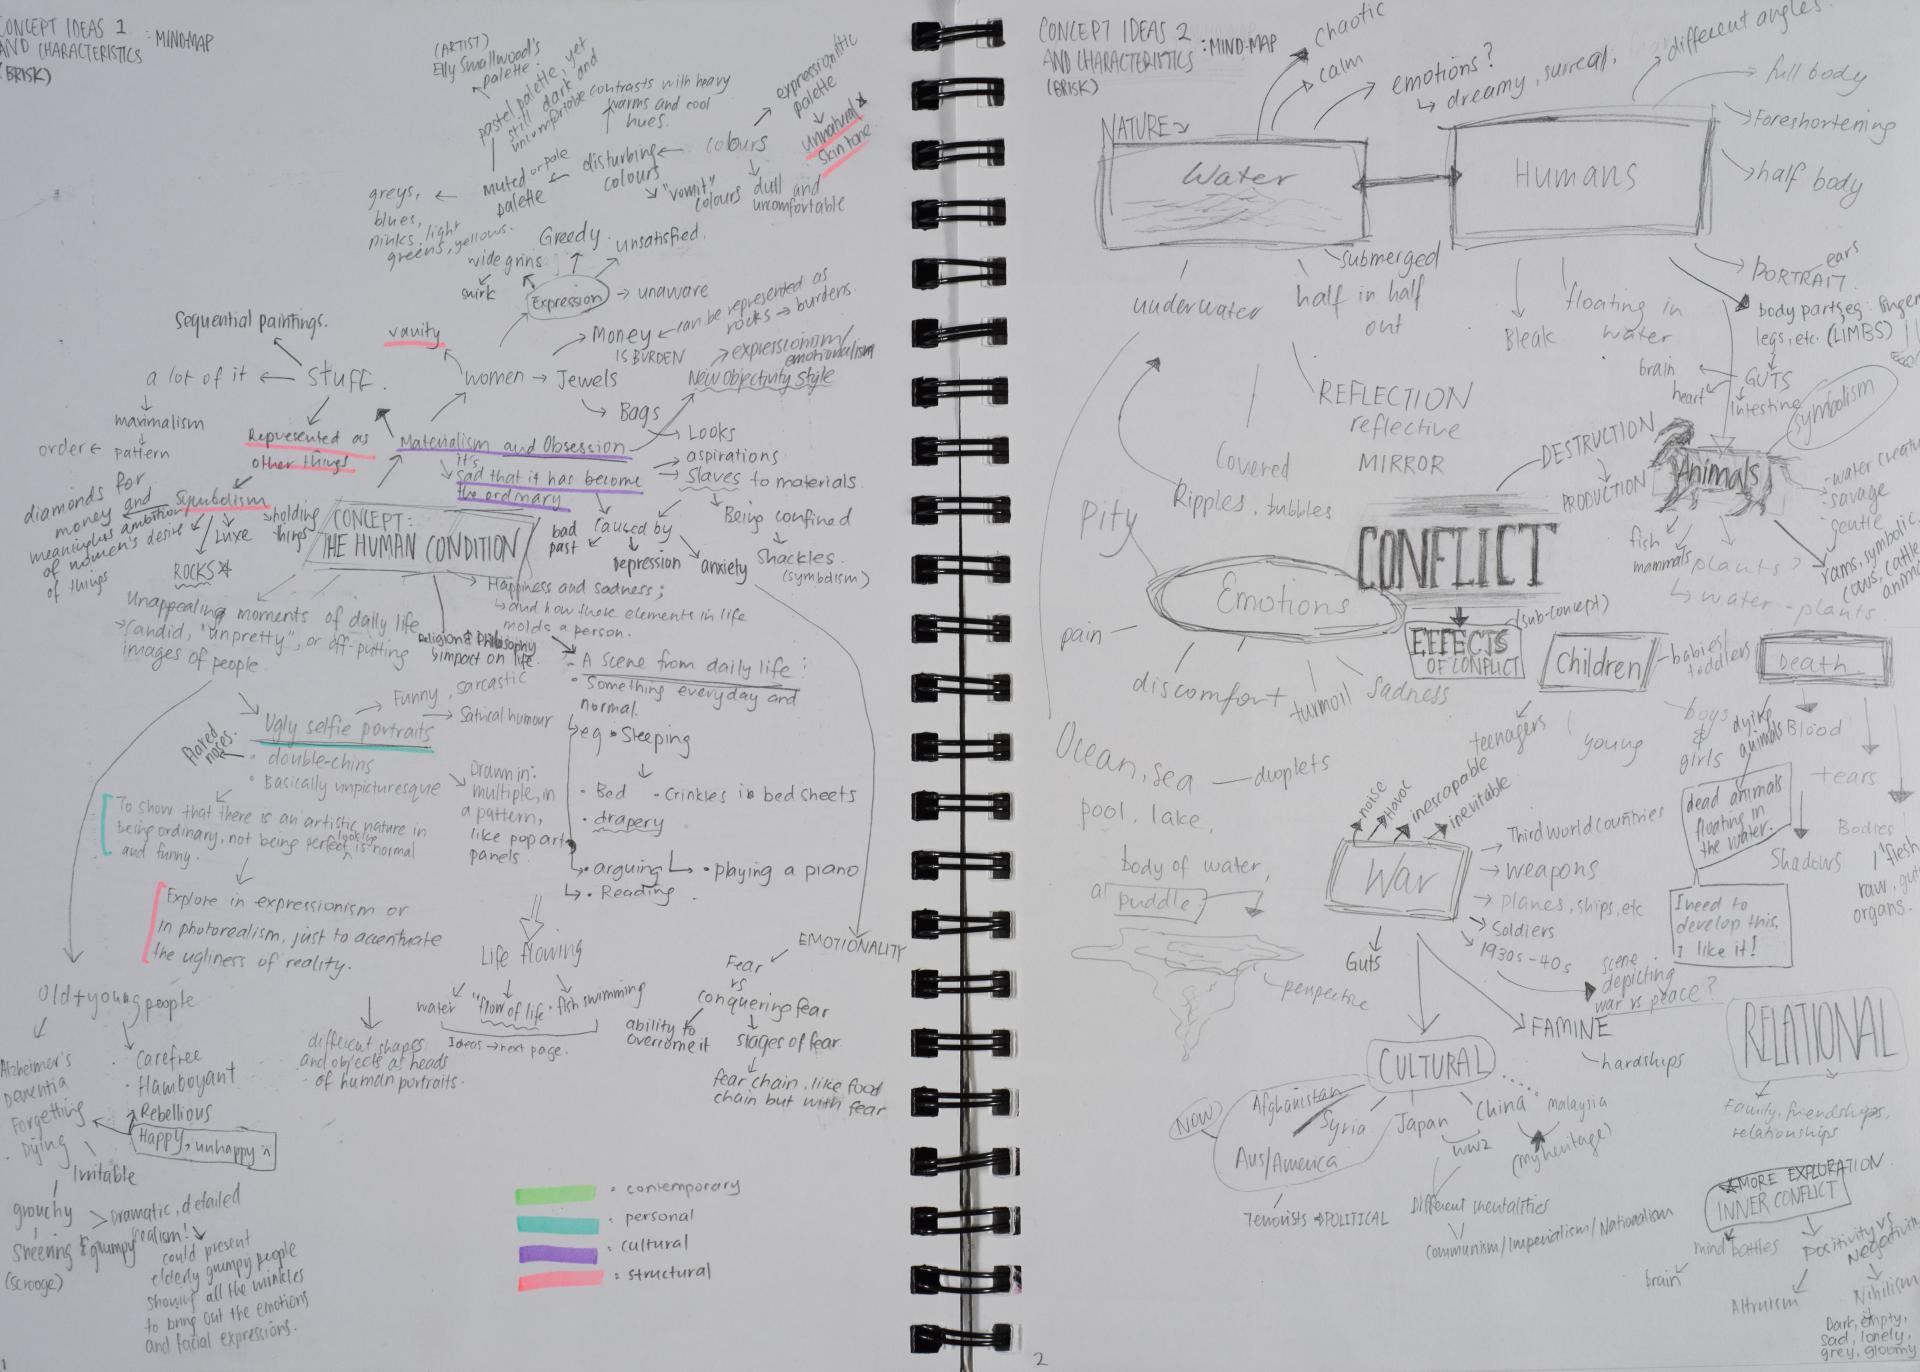 CONCEPT IDEAS 1
AND CHARACTERISTICS : MIND-MAP
(BRISK)
(ARTIST)
Elly Smallwood's
palette.
pastel palette, yet
still dark and
uncomfortable
contrasts with heavy
warms and cool
hues.
expressionistic
palette
unnatural *
skin tone
colours
disturbing
colours
"vomit"
colours
dull and
uncomfortable
muted or pale
palette
greys,
blues,
pinks, light
greens, yellows.
Greedy.
unsatisfied.
wide grins
smirk
Expression
unaware
Sequential paintings.
vanity
Money
IS BURDEN
can be represented as
rocks → burdens.
expressionism/
emotionalism
New Objectivity Style
a lot of it
stuff.
women → Jewels
Bags
maximalism
order
pattern
Represented as
other things
Materialism and Obsession
it's
sad that it has become
the ordinary
Looks
aspirations
Slaves to materials.
Being confined
Shackles.
(symbolism)
diamonds for
money and
meaningless ambition
of women's desire
of things
Symbolism
Luxe
holding
things
ROCKS *
CONCEPT:
THE HUMAN CONDITION
bad
past
caused by
depression
anxiety
Happiness and sadness;
and how these elements in life
molds a person.
Religion & Philosophy
impact on life.
Unappealing moments of daily life
candid, "unpretty", or off-putting
images of people
A scene from daily life:
• Something everyday and
normal.
eg • Sleeping
• Bed
• Crinkles in bed sheets
• drapery
• arguing
• playing a piano
• Reading
Funny, sarcastic
Satirical humour
Ugly selfie portraits
flared
noses.
• double-chins
• Basically unpicturesque
Drawn in:
multiple, in
a pattern,
like pop art
panels
To show that there is an artistic nature in
being ordinary, not being perfect looking is normal
and funny.
Explore in expressionism or
in photorealism, just to accentuate
the ugliness of reality.
Life flowing
water
"flow of life"
• fish swimming
Ideas → next page.
EMOTIONALITY
Fear
vs
conquering fear
ability to
overcome it
stages of fear.
fear chain, like food
chain but with fear
different shapes
and objects as heads
of human portraits.
Old + young people
Alzheimer's
Dementia
Forgetting
Dying
Irritable
grouchy
Sneering & grumpy
(scrooge)
• Carefree
• flamboyant
Rebellious
Happy, unhappy
Dramatic, detailed
realism!
could present
elderly grumpy people
showing all the wrinkles
to bring out the emotions
and facial expressions.
: contemporary
: personal
: cultural
: structural
1
CONCEPT IDEAS 2
AND CHARACTERISTICS : MIND-MAP
(BRISK)
chaotic
calm
emotions?
dreamy, surreal,
different angles.
full body
Foreshortening
half body
NATURE
Water
Humans
underwater
submerged
half in half
out
Bleak
floating in
water
PORTRAIT
ears
body parts, eg: finger
legs, etc. (LIMBS)
GUTS
brain
heart
Intestine
symbolism
REFLECTION
reflective
MIRROR
Covered
Ripples, bubbles
DESTRUCTION
PRODUCTION
Animals
water creatur
savage
gentle
fish
mammals
plants?
water-plants
rams, symbolic
cows, cattle
anima
Pity
Emotions
CONFLICT
(sub-concept)
EFFECTS
OF CONFLICT
pain
discomfort
turmoil
sadness
Children
babies/
toddlers
Death
teenagers
young
boys
&
girls
dying
animals
Blood
tears
Bodies
flesh
raw, guts
organs.
Shadows
dead animals
floating in
the water.
I need to
develop this.
I like it!
Ocean, sea
droplets
pool, lake,
body of water,
a puddle
perspective
noise
Havoc
inescapable
inevitable
War
Third world countries
weapons
planes, ships, etc
Soldiers
1930s-40s
Guts
scene
depicting
war vs peace?
FAMINE
hardships
RELATIONAL
Family, friendships,
relationships
CULTURAL
NOW
Afghanistan
Syria
Aus/America
Japan
China
malaysia
WW2
(my heritage)
Terrorists → POLITICAL
Different mentalities
Communism/Imperialism/Nationalism
*MORE EXPLORATION
INNER CONFLICT
mind battles
brain
Positivity vs
Negativit
Altruism
Nihilism
Dark, empty,
sad, lonely,
grey, gloomy
2